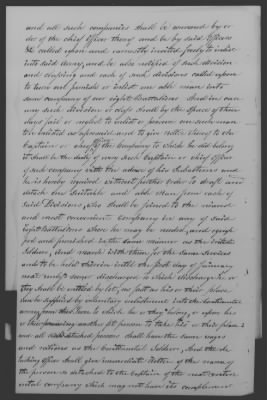 and all such companies shall be warned by or
der of the chief Officer thereof and be by said Officers
be called upon and earnestly invited freely to inlist
into said Army, and be also notified of such division
and classing and each of such divisions called upon
to turn out furnish or inlist one able man into
some company of our eight Battalions And in case
any such division or class shall by the space of three
days fail or neglect to inlist or procure one such man
to be enlisted as aforesaid and to give notice thereof to the
Captain or chief officer of the Company to which he did belong
it shall be the duty of every such Captain or chief officer
of such company with the advice of his Subalterns and
he is hereby required without further order to draft and
detach one suitable and able man from each of
said Divisions, who shall be joined to the nearest
and most convenient company in any of said
eight Battalions where he may be needed, and equip
ped and furnished in the same manner as the inlisted
Soldier, and march with them, for the same services
and to be held therein until the first day of January
next, unless sooner discharged to which discharge he or
they shall be entitled by lot, as fast as his or their place
can be supplied by voluntary enlistment into the Continental
army, from the Town to which he or they belong, or upon his
or their procuring another fit person to take his or their place:
and all such detached persons shall have the same wages
and rations as the Continental Soldier, And the de
taching Officer shall give immediate Notice of the name of
the person so detached to the Captain of the next contin
ental company which may not have its complement